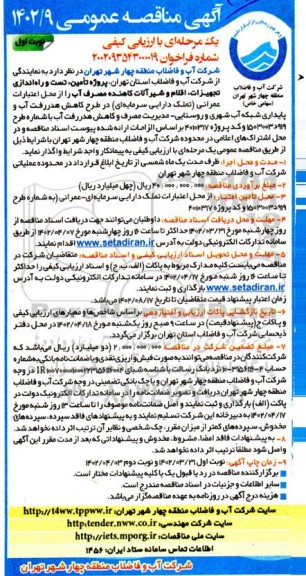 آگهی مناقصه عمومی ۱۴۰۲/۹
نوبت اول
یک مرحله‌ای با ارزیابی کیفی
شماره فراخوان ۲۰۰۲۰۹۳۵۴۳۰۰۰۰۱۹
شرکت آب و فاضلاب
منطقه چهار شهر تهران
(سهامی خاص)
شرکت آب و فاضلاب منطقه چهار شهر تهران در نظر دارد به نمایندگی
از شرکت آب و فاضلاب استان تهران، پروژه تأمین، تست و راه‌اندازی
تجهیزات، اقلام و شیرآلات کاهنده مصرف آب را از محل اعتبارات
عمرانی (تملک دارایی سرمایه‌ای) در طرح کاهش هدررفت آب و
پایداری شبکه آب شهری و روستایی- مدیریت مصرف و کاهش هدررفت آب با شماره طرح
براساس الزامات ارائه شده پیوست اسناد مناقصه و در
محل اشتراک‌های اعلامی در محدوده شرکت آب و فاضلاب منطقه چهار شهر تهران با شرایط ذیل
از طریق مناقصه عمومی یک مرحله‌ای با ارزیابی کیفی به پیمانکار واجد شرایط واگذار نماید.
۱- مدت و محل اجرا: ظرف مدت یک ماه شمسی از تاریخ ابلاغ قرارداد در محدوده عملیاتی
شرکت آب و فاضلاب منطقه چهار شهر تهران
۲- مبلغ برآوردی مناقصه: ۴۰,۰۰۰,۰۰۰,۰۰۰ ریال (چهل میلیارد ریال)
۳- محل تأمین اعتبار: از محل اعتبارات تملک دارایی سرمایه‌ای- عمرانی (به شماره طرح
۴- مهلت و محل دریافت اسناد مناقصه: داوطلبان می‌توانند جهت دریافت اسناد مناقصه از
روز چهارشنبه مورخ ۱۴۰۲/۰۳/۳۱ حداکثر تا ساعت ۶ روز چهارشنبه مورخ ۱۴۰۲/۰۴/۰۷ از طریق
سامانه تدارکات الکترونیکی دولت به آدرس www.setadiran.ir اقدام نمایند.
۵- مهلت و محل تحویل اسناد ارزیابی کیفی و اسناد مناقصه: متقاضیان شرکت در
مناقصه می‌بایست کلیه مدارک مربوط به پاکات (الف، ب، ج) و اسناد ارزیابی کیفی را حداکثر
تا ساعت ۶ روز شنبه مورخ ۱۴۰۲/۰۴/۱۷ در سامانه تدارکات الکترونیکی دولت به آدرس
www.setadiran.ir بارگذاری و ثبت نمایند.
زمان اعتبار پیشنهاد قیمت متقاضیان تا تاریخ ۱۴۰۲/۰۸/۱۷ می‌باشد.
۶- تاریخ بازگشایی پاکات ارزیابی و امتیازدهی براساس شاخص‌ها و معیارهای ارزیابی کیفی
و پاکات ج (پیشنهاد قیمت) در ساعت ۹ صبح روز یک‌شنبه مورخ ۱۴۰۲/۰۴/۱۸ در محل دفتر
ذیحسابی شرکت آب و فاضلاب استان تهران برگزار می‌گردد.
۷- مبلغ تضمین شرکت در مناقصه ۲,۰۰۰,۰۰۰,۰۰۰ (دو میلیارد) ریال می‌باشد که
شرکت‌کنندگان در مناقصه می‌توانند به صورت فیش واریز نقدی و یا ضمانت‌نامه بانکی به شماره
در وجه
شرکت آب و فاضلاب منطقه چهار شهر تهران و یا چک بانکی تضمینی در وجه شرکت آب و فاضلاب
منطقه چهار شهر تهران دریافت و تصویر ضمانت‌نامه را در سامانه تدارکات الکترونیک دولت در
پاکت (الف) بارگذاری و ثبت نمایند و اصل ضمانت‌نامه موصوف را تا ساعت ۶ روز شنبه مورخ
۱۴۰۲/۰۴/۱۷ به دبیرخانه این شرکت تسلیم نمایند و به پیشنهادهای فاقد سپرده، سپرده‌های
مخدوش، سپرده‌های کمتر از میزان مقرر، چک شخصی و نظایر آن ترتیب اثر داده نخواهد شد.
۸- به پیشنهادات فاقد امضا، مشروط، مخدوش و پیشنهاداتی که بعد از مدت مقرر این آگهی
واصل شود مطلقاً ترتیب اثر داده نخواهد شد.
۹- زمان چاپ آگهی: نوبت اول ۱۴۰۲/۰۳/۳۱ و نوبت دوم ۱۴۰۲/۰۴/۰۳
- برگزارکننده مناقصه در رد یا قبول یک یا کلیه پیشنهادات مختار است.
- سایر اطلاعات و جزئیات در اسناد مناقصه مندرج است.
- هزینه درج آگهی در روزنامه به عهده مناقصه‌گزار می‌باشد.
سایت شرکت آب و فاضلاب منطقه چهار شهر تهران: http://t4ww.tpww.ir
سایت شرکت مهندسی: http:tender.nww.co.ir
سایت ملی مناقصات: http://iets.mporg.ir
اطلاعات تماس سامانه ستاد ایران: ۱۴۵۶
شرکت آب و فاضلاب منطقه چهار شهر تهران